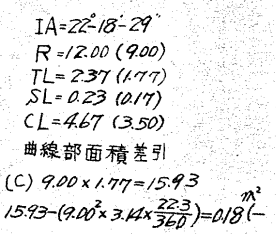 IA=22°-18'-29"
R=12.00 (9.00)
TL=2.37 (1.77)
SL=0.23 (0.17)
CL=4.67 (3.50)
曲線部面積差引
(C) 9.00×1.77=15.93
15.93-(9.00²×3.14×22.3/360)=0.18(-
m²